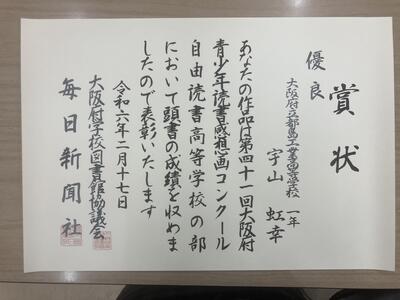 賞状
優良
大阪府立都島工業高等学校 一年
宇山 虹幸
あなたの作品は第四十一回大阪府
青少年読書感想画コンクール
自由読書高等学校の部
において頭書の成績を収めま
したので表彰いたします
令和六年二月十七日
大阪府学校図書館協議会
毎日新聞社